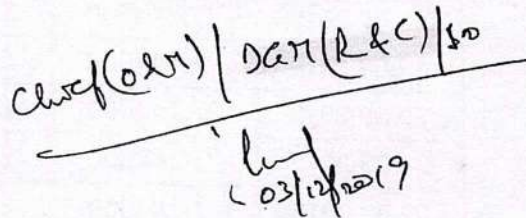 Chief(O&M) | DGM(R&C) | SO
03/12/2019